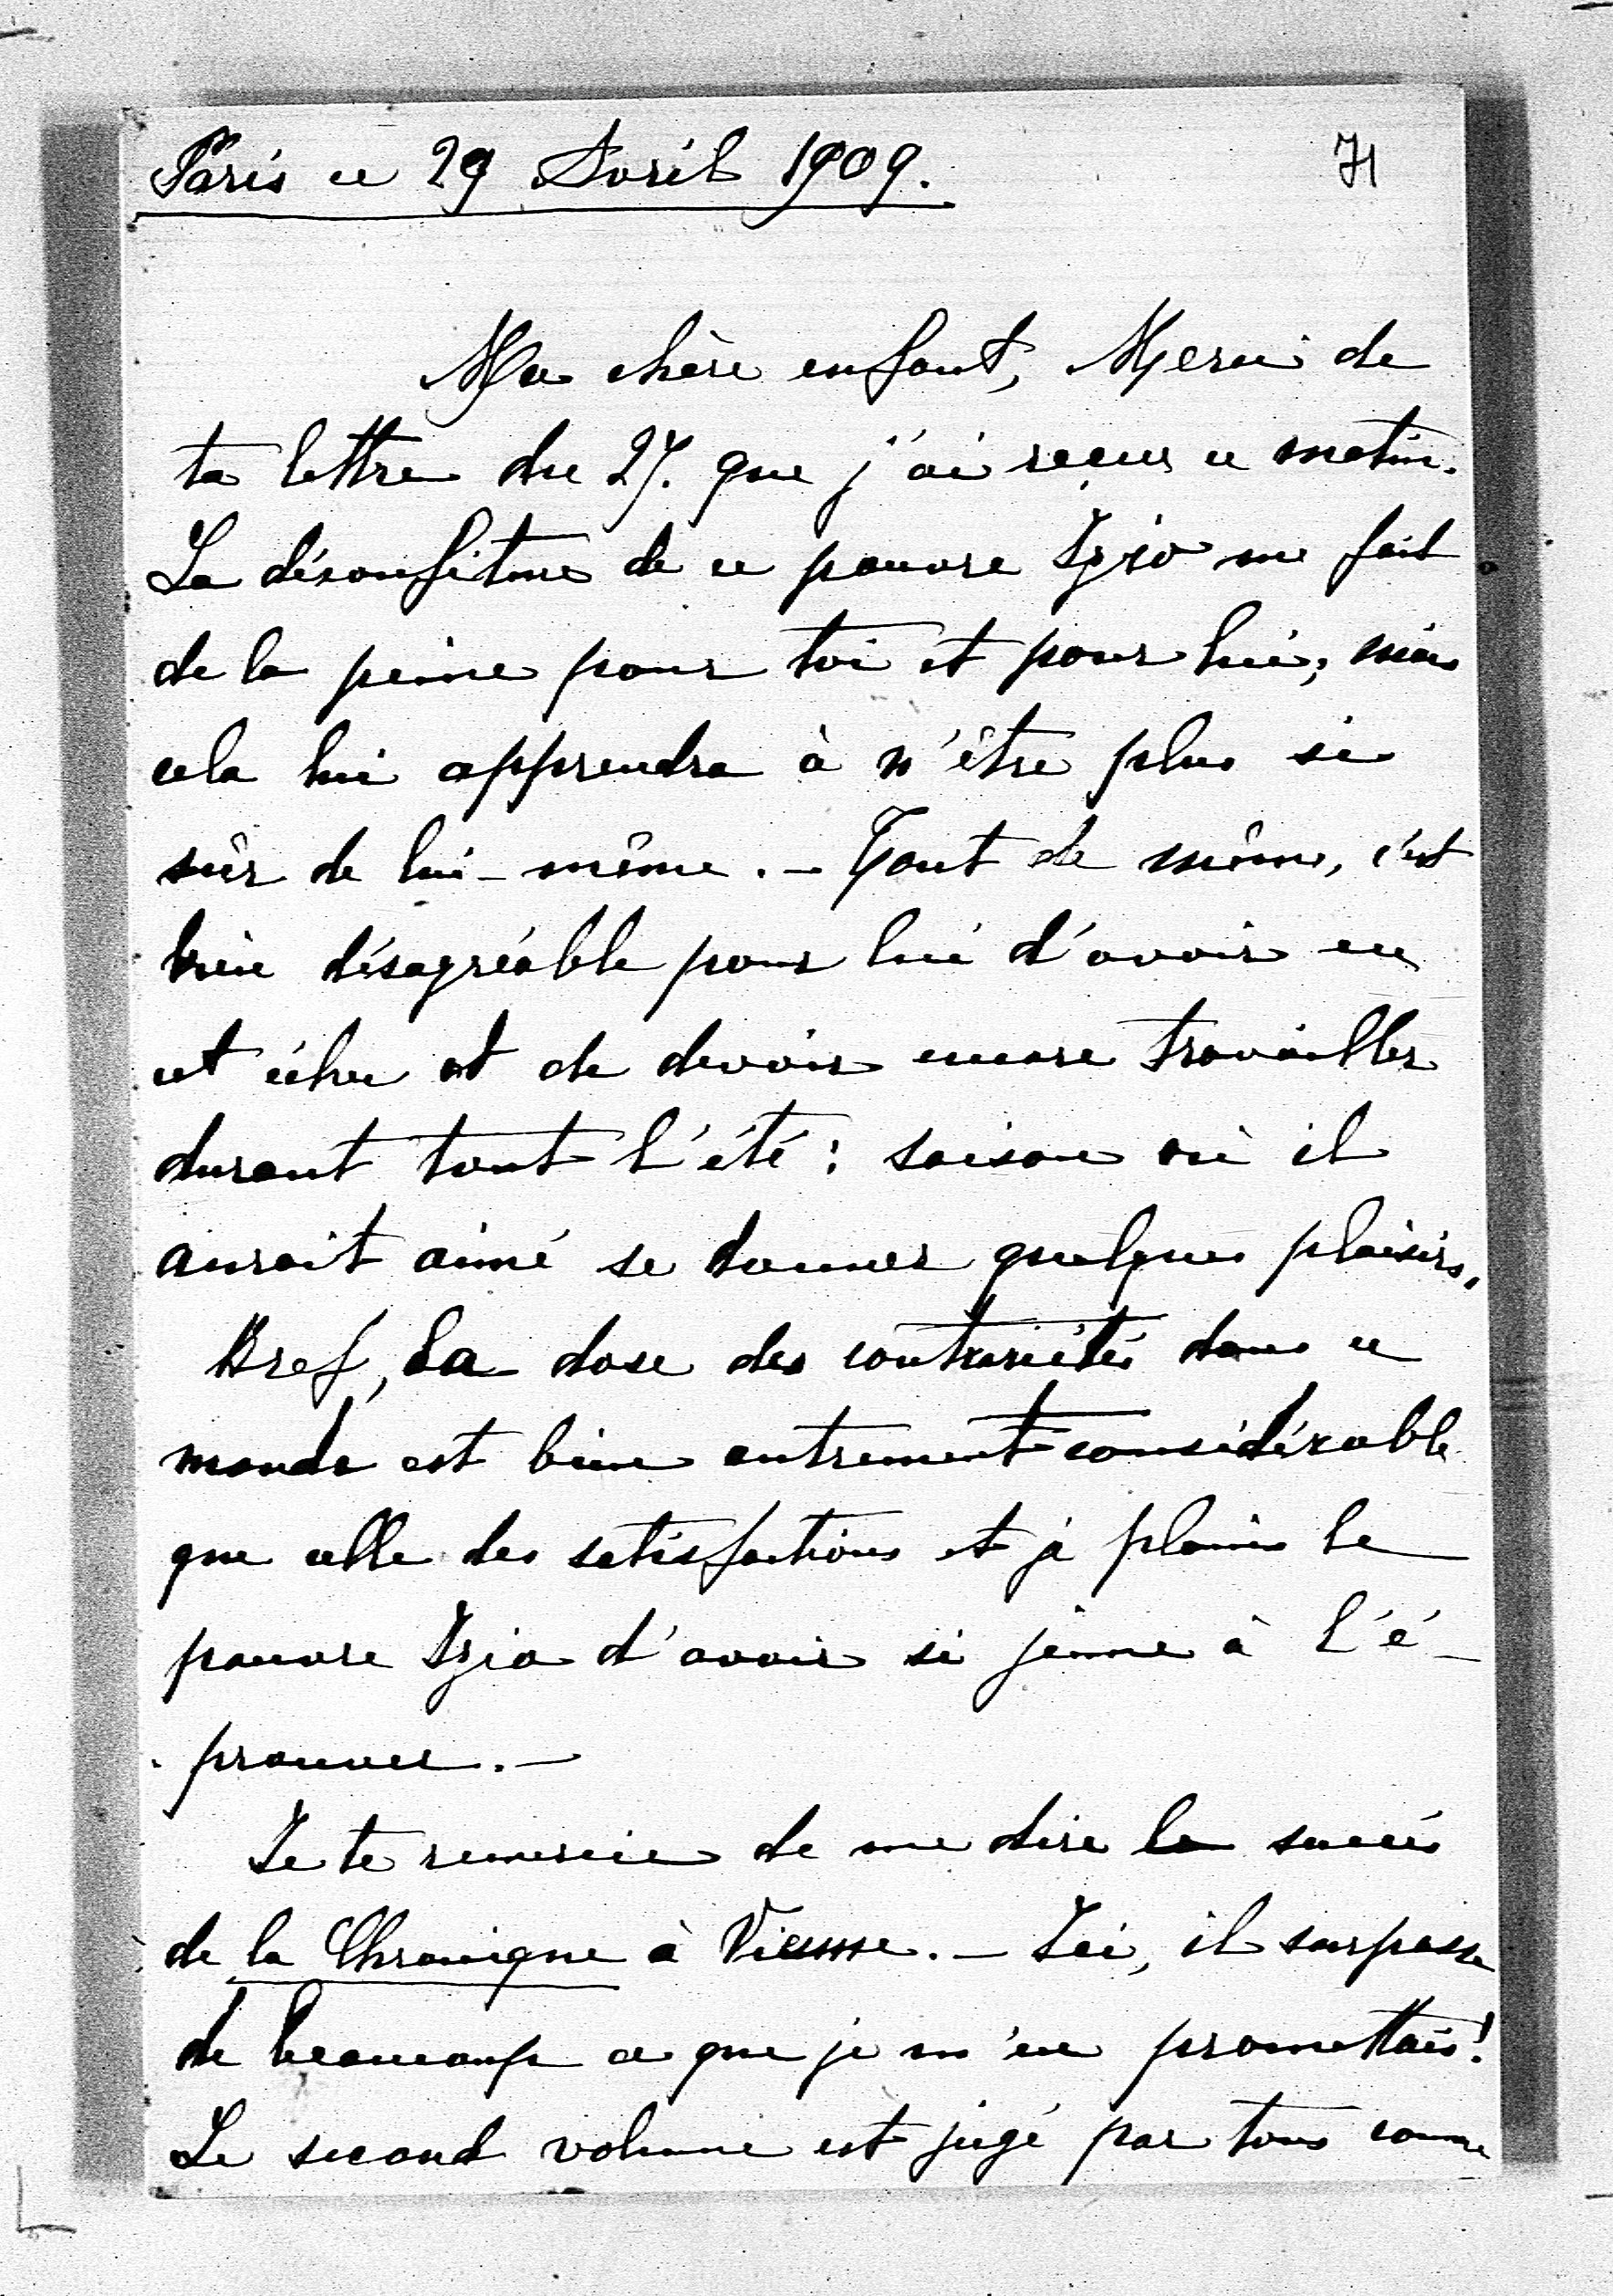 Paris ce 29 Avril 1909.
71
Ma chère enfant, Merci de
ta lettre du 27. que j'ai reçue ce matin.
La déconfiture de ce pauvre Izio me fait
de la peine pour toi et pour lui; mais
cela lui apprendra à n'être plus si
sûr de lui-même. - Tout de même, c'est
bien désagréable pour lui d'avoir eu
cet échec et de devoir encore travailler
durant tout l'été: saison où il
aurait aimé se donner quelques plaisirs.
Bref, la dose des contrariétés dans ce
monde est bien autrement considérable
que celle des satisfactions et je plains le
pauvre Izio d'avoir si jeune à l'é-
prouver. -
Je te remercie de me dire le succès
de la Chronique à Vienne. - Ici, il surpasse
de beaucoup ce que je m'en promettais!
Le second volume est jugé par tous comme